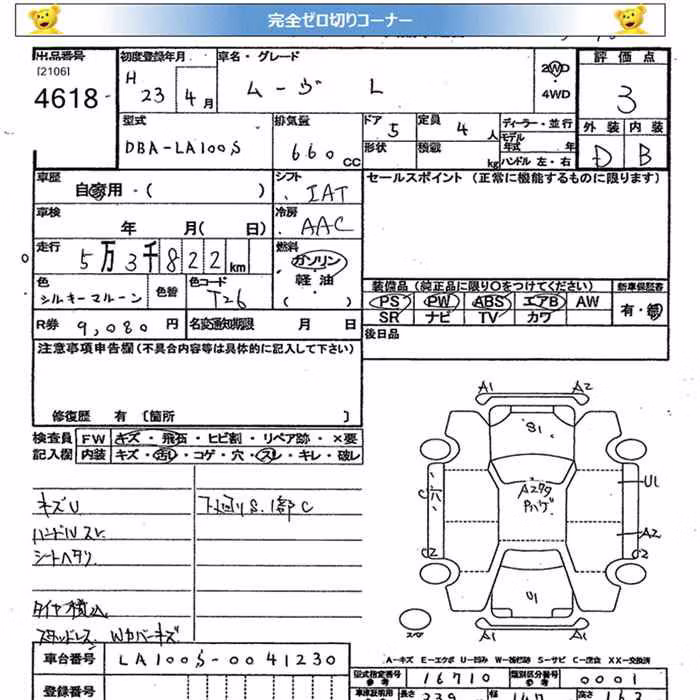 完全ゼロ切りコーナー
出品番号
[2106]
4618
初度登録年月
H 23 年 4 月
車名・グレード
ムーヴ L
2WD
4WD
評価点
3
外装 内装
D B
型式
DBA-LA100S
排気量
660 CC
ドア 5
形状
定員 4 人
積載 kg
ディーラー・並行
モデル年式 年
ハンドル 左・右
車歴
自家用・( )
シフト
IAT
セールスポイント (正常に機能するものに限ります)
車検
年 月( 日)
冷房
AAC
走行
5万3千822 km
燃料
ガソリン
・軽油
( )
色
シルキーマルーン
色替
色コード
T26
装備品(純正品に限り〇をつけてください)
PS PW ABS エアB AW
SR ナビ TV カワ
新車保証書
有・無
R券 9,080 円
名変通知期限 月 日
後日品
注意事項申告欄(不具合内容等は具体的に記入して下さい)
修復歴 有 [箇所 ]
検査員
記入欄
FW キズ・飛石・ヒビ割・リペア跡・×要
内装 キズ・汚れ・コゲ・穴・スレ・キレ・破レ
キズU
ハンドルスレ
シートヘタリ
タイヤ積込
スタッドレス Wカバーキズ
下廻りS.1部C
A1 A2
S1
U1
A2
C2 C2
U1
A1 A1
スペア
A-キズ E-エクボ U-凹み W-補修跡 S-サビ C-腐食 XX-交換済
車台番号
LA100S-0041230
登録番号
型式指定番号
参考
16710
類別区分番号
参考
0001